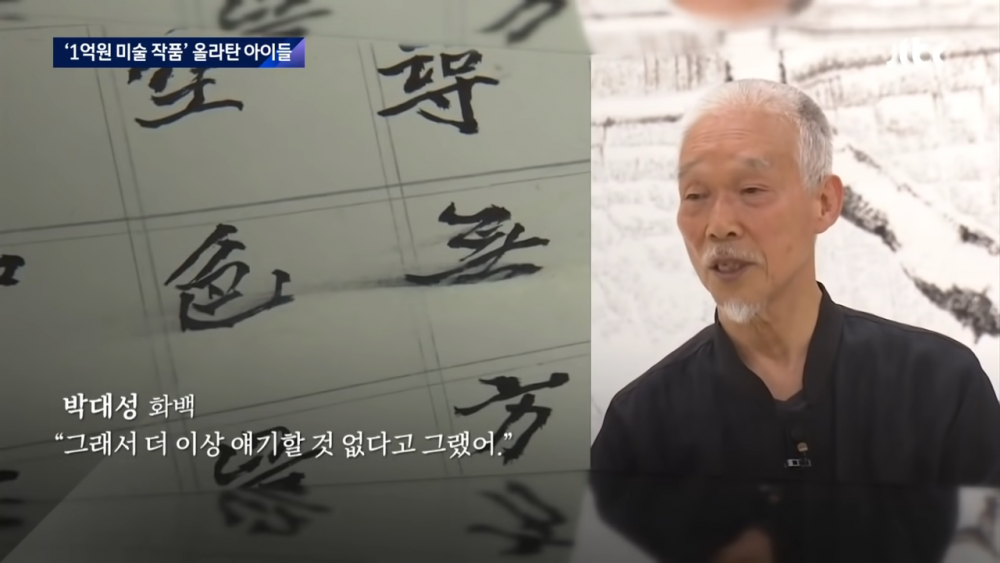 ‘1억원 미술 작품’ 올라탄 아이들
jtbc
得
色 無
方
박대성 화백
“그래서 더 이상 얘기할 것 없다고 그랬어.”